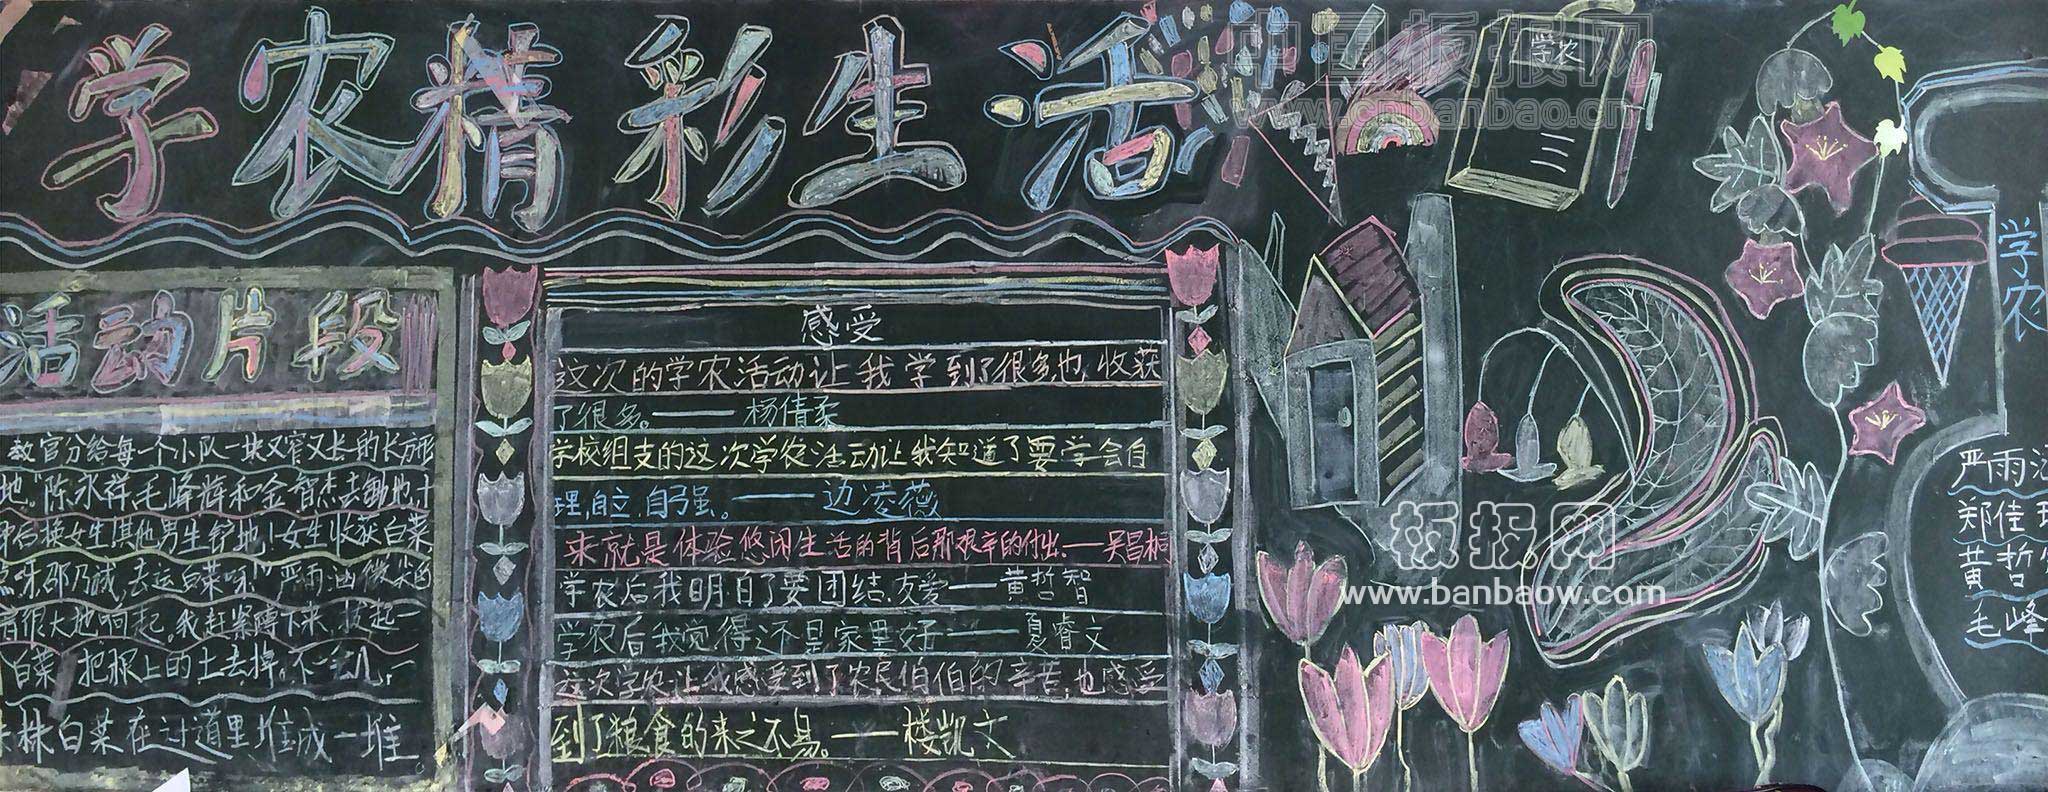 学农精彩生活
中国板报网
www.cnbanbao.cn
学农
活动片段
教官分给每一个小队一块又窄又长的长方形
地。"陈永祥毛峰辉和全智杰去锄地,十
钟后换女生,其他男生铲地!女生收获白菜
邵乃诚,去运白菜呀"严雨涵微尖的
音很大地响起。我赶紧蹲下来,拔起一
白菜把根上的土去掉。不一会儿,一
株白菜在过道里堆成一堆。
感受
这次的学农活动让我学到了很多也收获
了很多。——杨倩柔
学校组支的这次学农活动让我知道了要学会自
理,自立,自强。——边凌薇
来就是体验悠闲生活的背后那艰辛的付出.——吴昌桐
学农后我明白了要团结,友爱——黄哲智
学农后我觉得还是家里好——夏睿文
这次学农让我感受到了农民伯伯的辛苦,也感受
到了粮食的来之不易。——楼凯文
板报网
www.banbaow.com
学农
严雨
郑佳
黄哲
毛峰